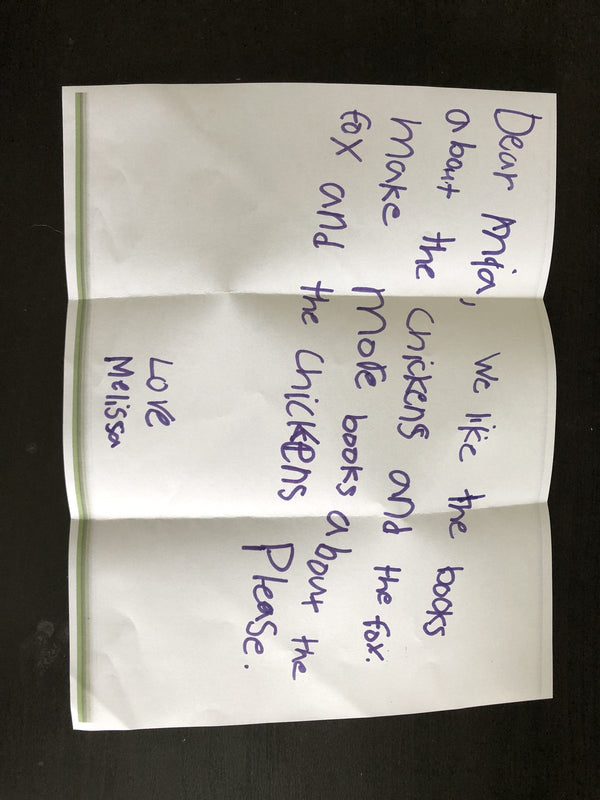 Dear Mia, We like the books
about the chickens and the fox.
Make More books about the
fox and the chickens Please.
Love
Melissa